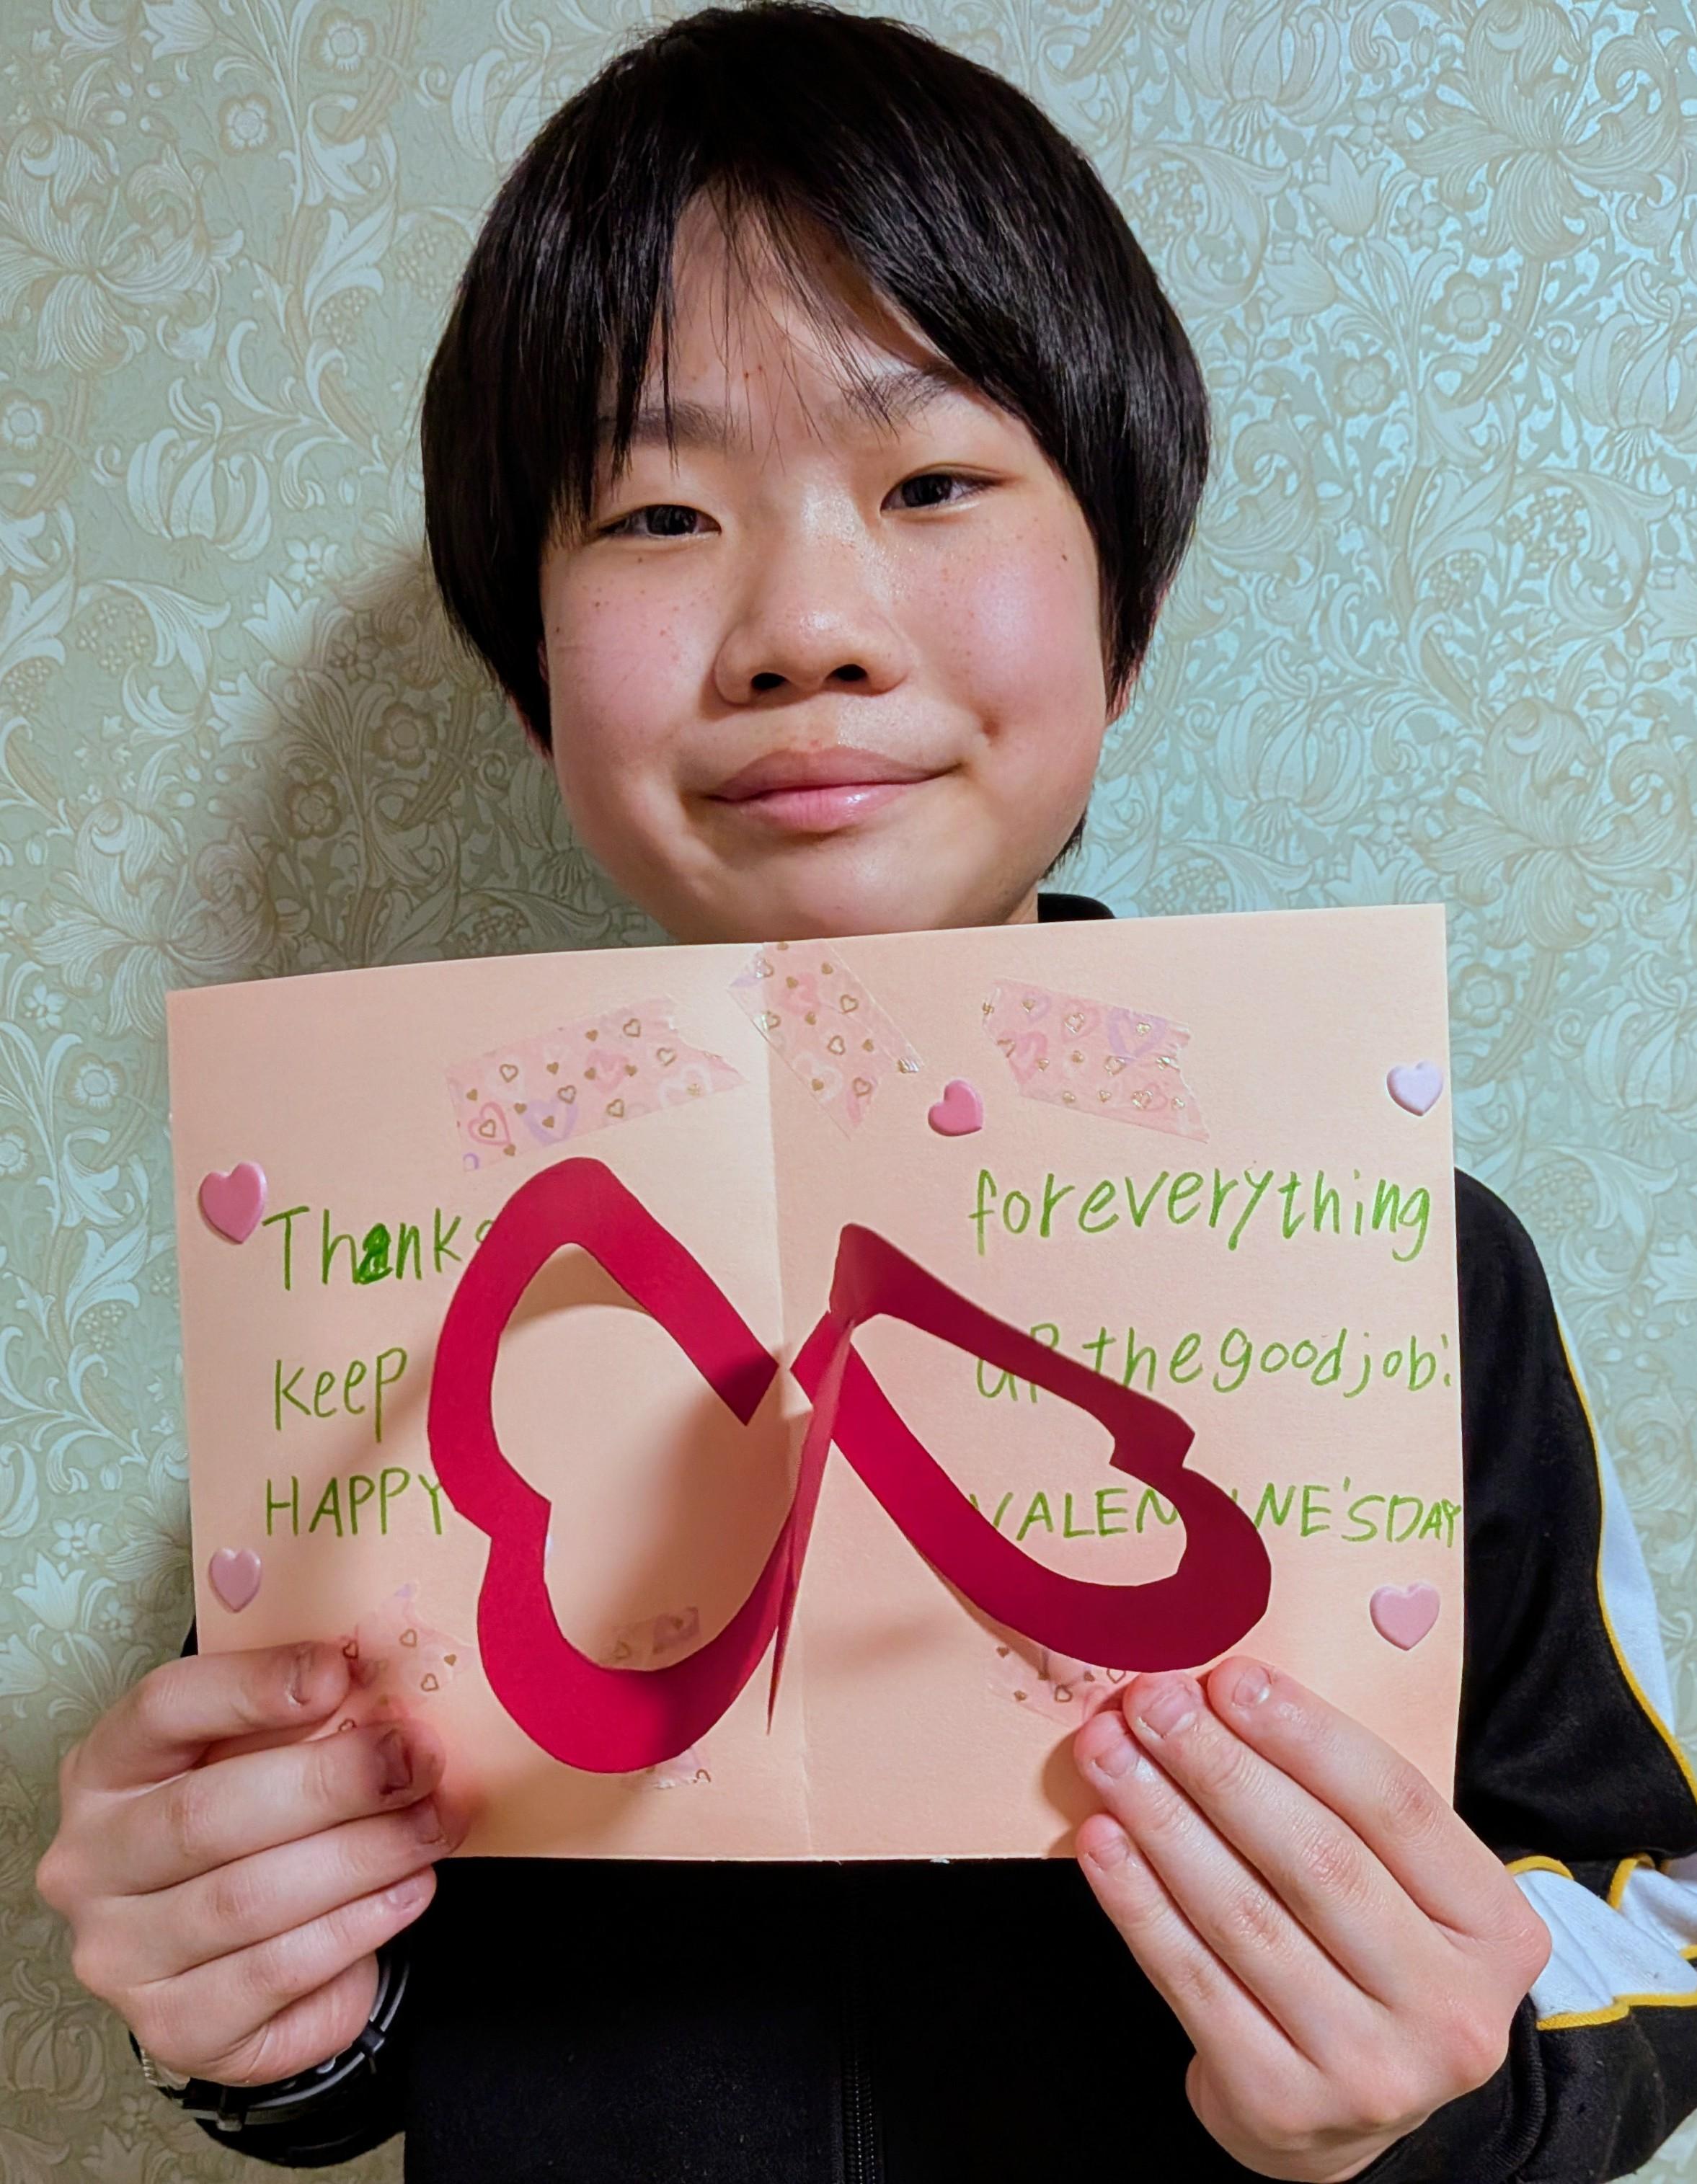 Thanks foreverything
keep up the good job!
HAPPY VALENTINE'S DAY